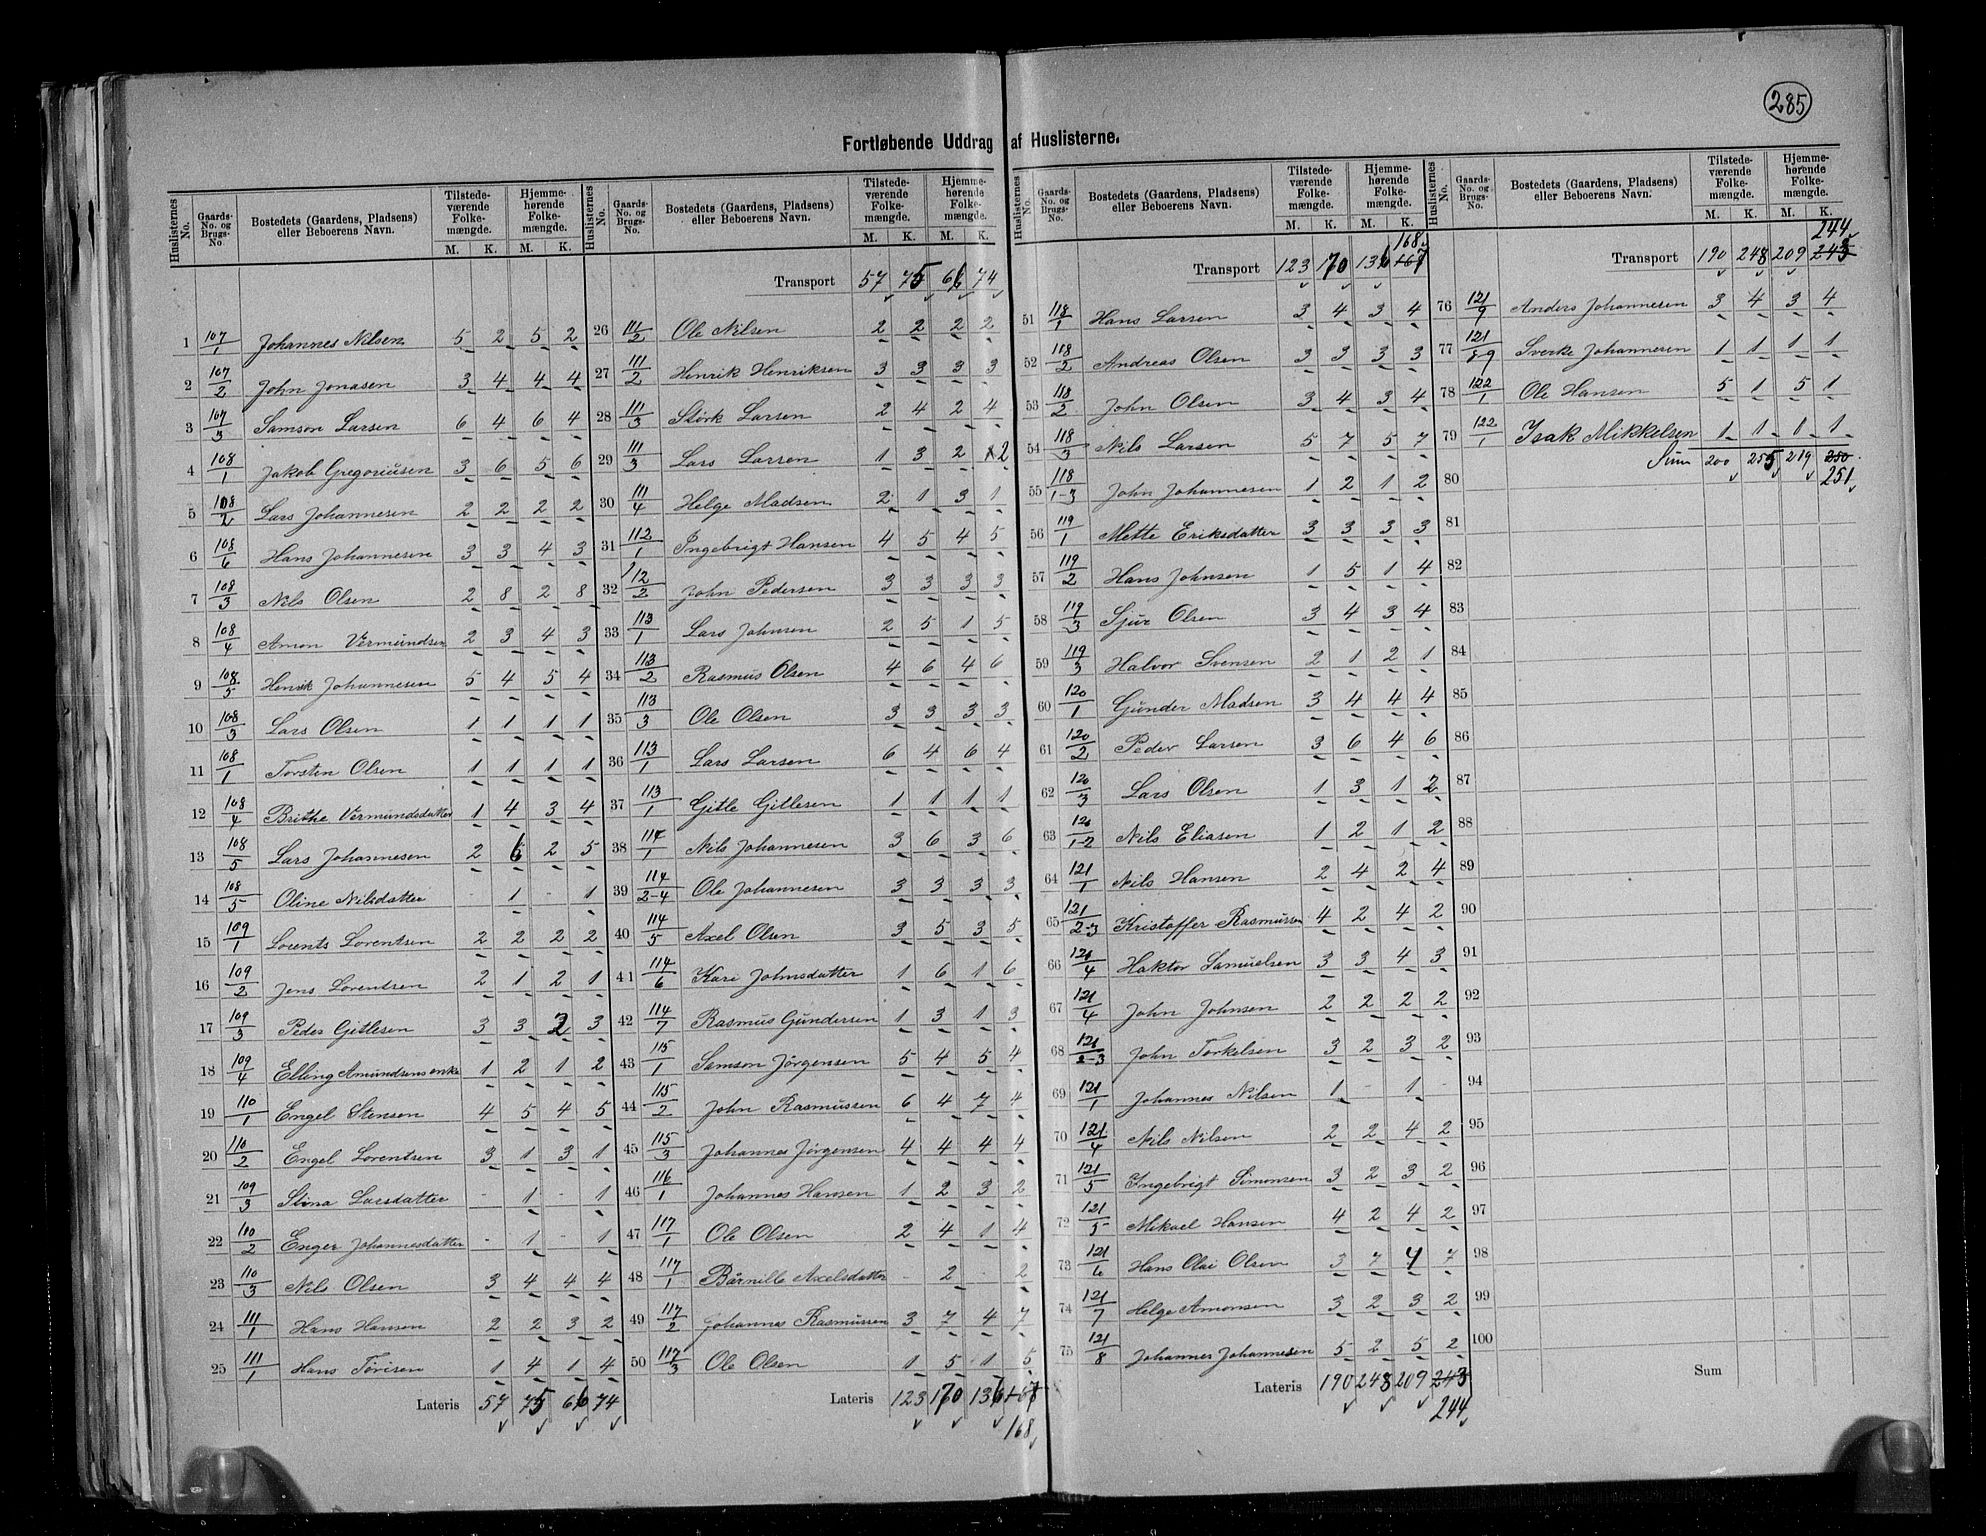 285
Fortløbende Uddrag af Huslisterne.
Huslisternes No. Gaards-No. og Brugs-No Bostedets (Gaardens, Pladsens) eller Beboerens Navn. Tilstedeværende Folkemængde. M. K. Hjemmehørende Folkemængde. M. K.
1 107/1 Johannes Nilsen 5 2 5 2
2 107/2 John Jonasen 3 4 4 4
3 107/3 Samson Larsen 6 4 6 4
4 108/1 Jakob Gregoriusen 3 6 5 6
5 108/2 Lars Johannesen 2 2 2 2
6 108/6 Hans Johannesen 3 3 4 3
7 108/3 Nils Olsen 2 8 2 8
8 108/4 Amon Vermundsen 2 3 4 3
9 108/5 Henrik Johannesen 5 4 5 4
10 108/3 Lars Olsen 1 1 1 1
11 108/1 Torsten Olsen 1 1 1 1
12 108/4 Brithe Vermundsdatter 1 4 3 4
13 108/5 Lars Johannesen 2 6 2 5
14 108/5 Oline Nilsdatter - 1 - 1
15 109/1 Lorents Lorentsen 2 2 2 2
16 109/2 Jens Lorentsen 2 1 2 1
17 109/3 Peder Gitlesen 3 3 2 3
18 109/4 Elling Amundsens enke 1 2 1 2
19 110/1 Engel Stensen 4 5 4 5
20 110/2 Engel Lorentsen 3 1 3 1
21 109/3 Stina Larsdatter - 1 - 1
22 110/2 Enger Johannesdatter - 1 - 1
23 110/3 Nils Olsen 3 4 4 4
24 111/1 Hans Hansen 2 2 3 2
25 111/1 Hans Torisen 1 4 1 4
Lateris 57 75 66 74
Huslisternes No. Gaards-No. og Brugs-No. Bostedets (Gaardens, Pladsens) eller Beboerens Navn. Tilstedeværende Folkemængde. M. K. Hjemmehørende Folkemængde. M. K.
Transport 57 75 66 74
26 111/2 Ole Nilsen 2 2 2 2
27 111/2 Henrik Henriksen 3 3 3 3
28 111/3 Størk Larsen 2 4 2 4
29 111/3 Lars Larsen 1 3 2 2
30 111/4 Helge Madsen 2 1 3 1
31 112/1 Ingebrigt Hansen 4 5 4 5
32 112/2 John Pedersen 3 3 3 3
33 113/1 Lars Johnsen 2 5 1 5
34 113/2 Rasmus Olsen 4 6 4 6
35 113/3 Ole Olsen 3 3 3 3
36 113/1 Lars Larsen 6 4 6 4
37 113/1 Gitle Gitlesen 1 1 1 1
38 114/1 Nils Johannesen 3 6 3 6
39 114/2-4 Ole Johannesen 3 3 3 3
40 114/5 Axel Olsen 3 5 3 5
41 114/6 Kari Johnsdatter 1 6 1 6
42 114/7 Rasmus Gundersen 1 3 1 3
43 115/1 Samson Jørgensen 5 4 5 4
44 115/2 John Rasmussen 6 4 7 4
45 115/3 Johannes Jørgensen 4 4 4 4
46 116/1 Johannes Hansen 1 2 3 2
47 117/1 Ole Olsen 2 4 1 4
48 117/1 Børnille Axelsdatter - 2 - 2
49 117/2 Johannes Rasmussen 3 7 4 7
50 117/3 Ole Olsen 1 5 1 5
Lateris 123 170 136 167
168
Huslisternes No. Gaards-No. og Brugs-No. Bostedets (Gaardens, Pladsens) eller Beboerens Navn. Tilstedeværende Folkemængde. M. K. Hjemmehørende Folkemængde. M. K.
168
Transport 123 170 136 167
51 118/1 Hans Larsen 3 4 3 4
52 118/2 Andreas Olsen 3 3 3 3
53 118/2 John Olsen 3 4 3 4
54 118/3 Nils Larsen 5 7 5 7
55 118/1-3 John Johannesen 1 2 1 2
56 119/1 Mette Eriksdatter 3 3 3 3
57 119/2 Hans Johnsen 1 5 1 4
58 119/3 Sjur Olsen 3 4 3 4
59 119/3 Halvor Svensen 2 1 2 1
60 120/1 Gunder Madsen 3 4 4 4
61 120/2 Peder Larsen 3 6 4 6
62 120/3 Lars Olsen 1 3 1 2
63 120/1-2 Nils Eliasen 1 2 1 2
64 121/1 Nils Hansen 2 4 2 4
65 121/2-3 Kristoffer Rasmussen 4 2 4 2
66 121/4 Haktor Samuelsen 3 3 4 3
67 121/4 John Johnsen 2 2 2 2
68 121/2-3 John Torkelsen 3 2 3 2
69 121/1 Johannes Nilsen 1 - 1 -
70 121/4 Nils Nilsen 2 2 4 2
71 121/5 Ingebrigt Simonsen 3 2 3 2
72 121/5 Mikael Hansen 4 2 4 2
73 121/6 Hans Olai Olsen 3 7 4 7
74 121/7 Helge Amonsen 3 2 3 2
75 121/8 Johannes Johannesen 5 2 5 2
Lateris 190 248 209 243
244
Huslisternes No. Gaards-No. og Brugs-No. Bostedets (Gaardens, Pladsens) eller Beboerens Navn. Tilstedeværende Folkemængde. M. K. Hjemmehørende Folkemængde. M. K.
244
Transport 190 248 209 243
76 121/9 Anders Johannesen 3 4 3 4
77 121/8-9 Sverke Johannesen 1 1 1 1
78 122/1 Ole Hansen 5 1 5 1
79 122/1 Isak Mikkelsen 1 1 1 1
Sum 200 255 219 250
80 251
81
82
83
84
85
86
87
88
89
90
91
92
93
94
95
96
97
98
99
100
Sum